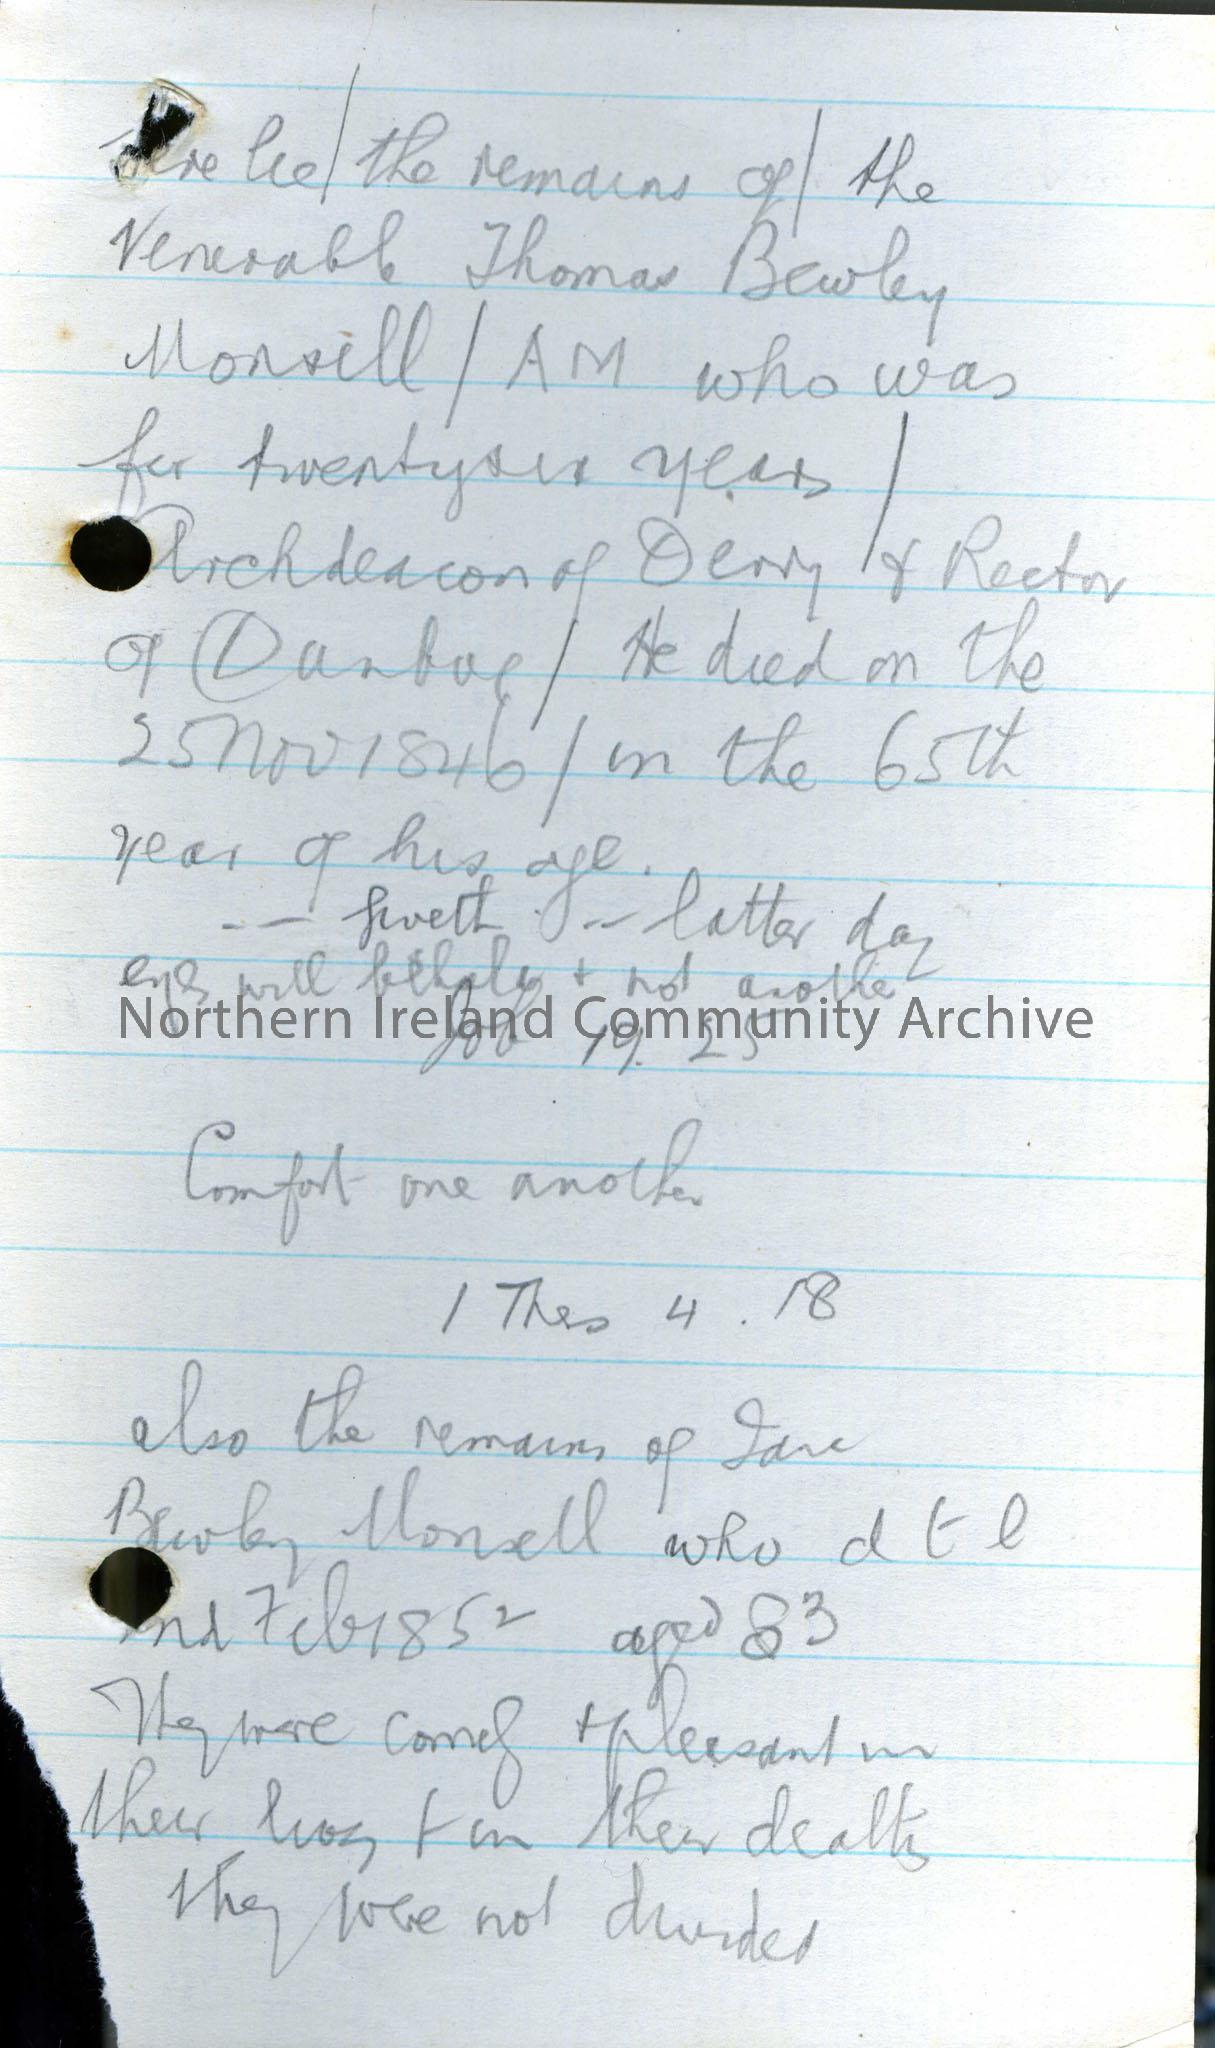 Here lie / the remains of / the
Venerable Thomas Bewley
Monsell / AM who was
for twentysix years /
Archdeacon of Derry / & Rector
of Dunboe / He died on the
25 Nov 1846 / in the 65th
year of his age.
-- liveth -- latter day
eyes will behold + not another
Northern Ireland Community Archive
Job 19. 25
Comfort one another
1 Thes 4. 18
also the remains of Jane
Bewley Monsell who d t l
2nd Feb 1852 aged 83
They were comely + pleasant in
their lives + in their deaths
they were not divided